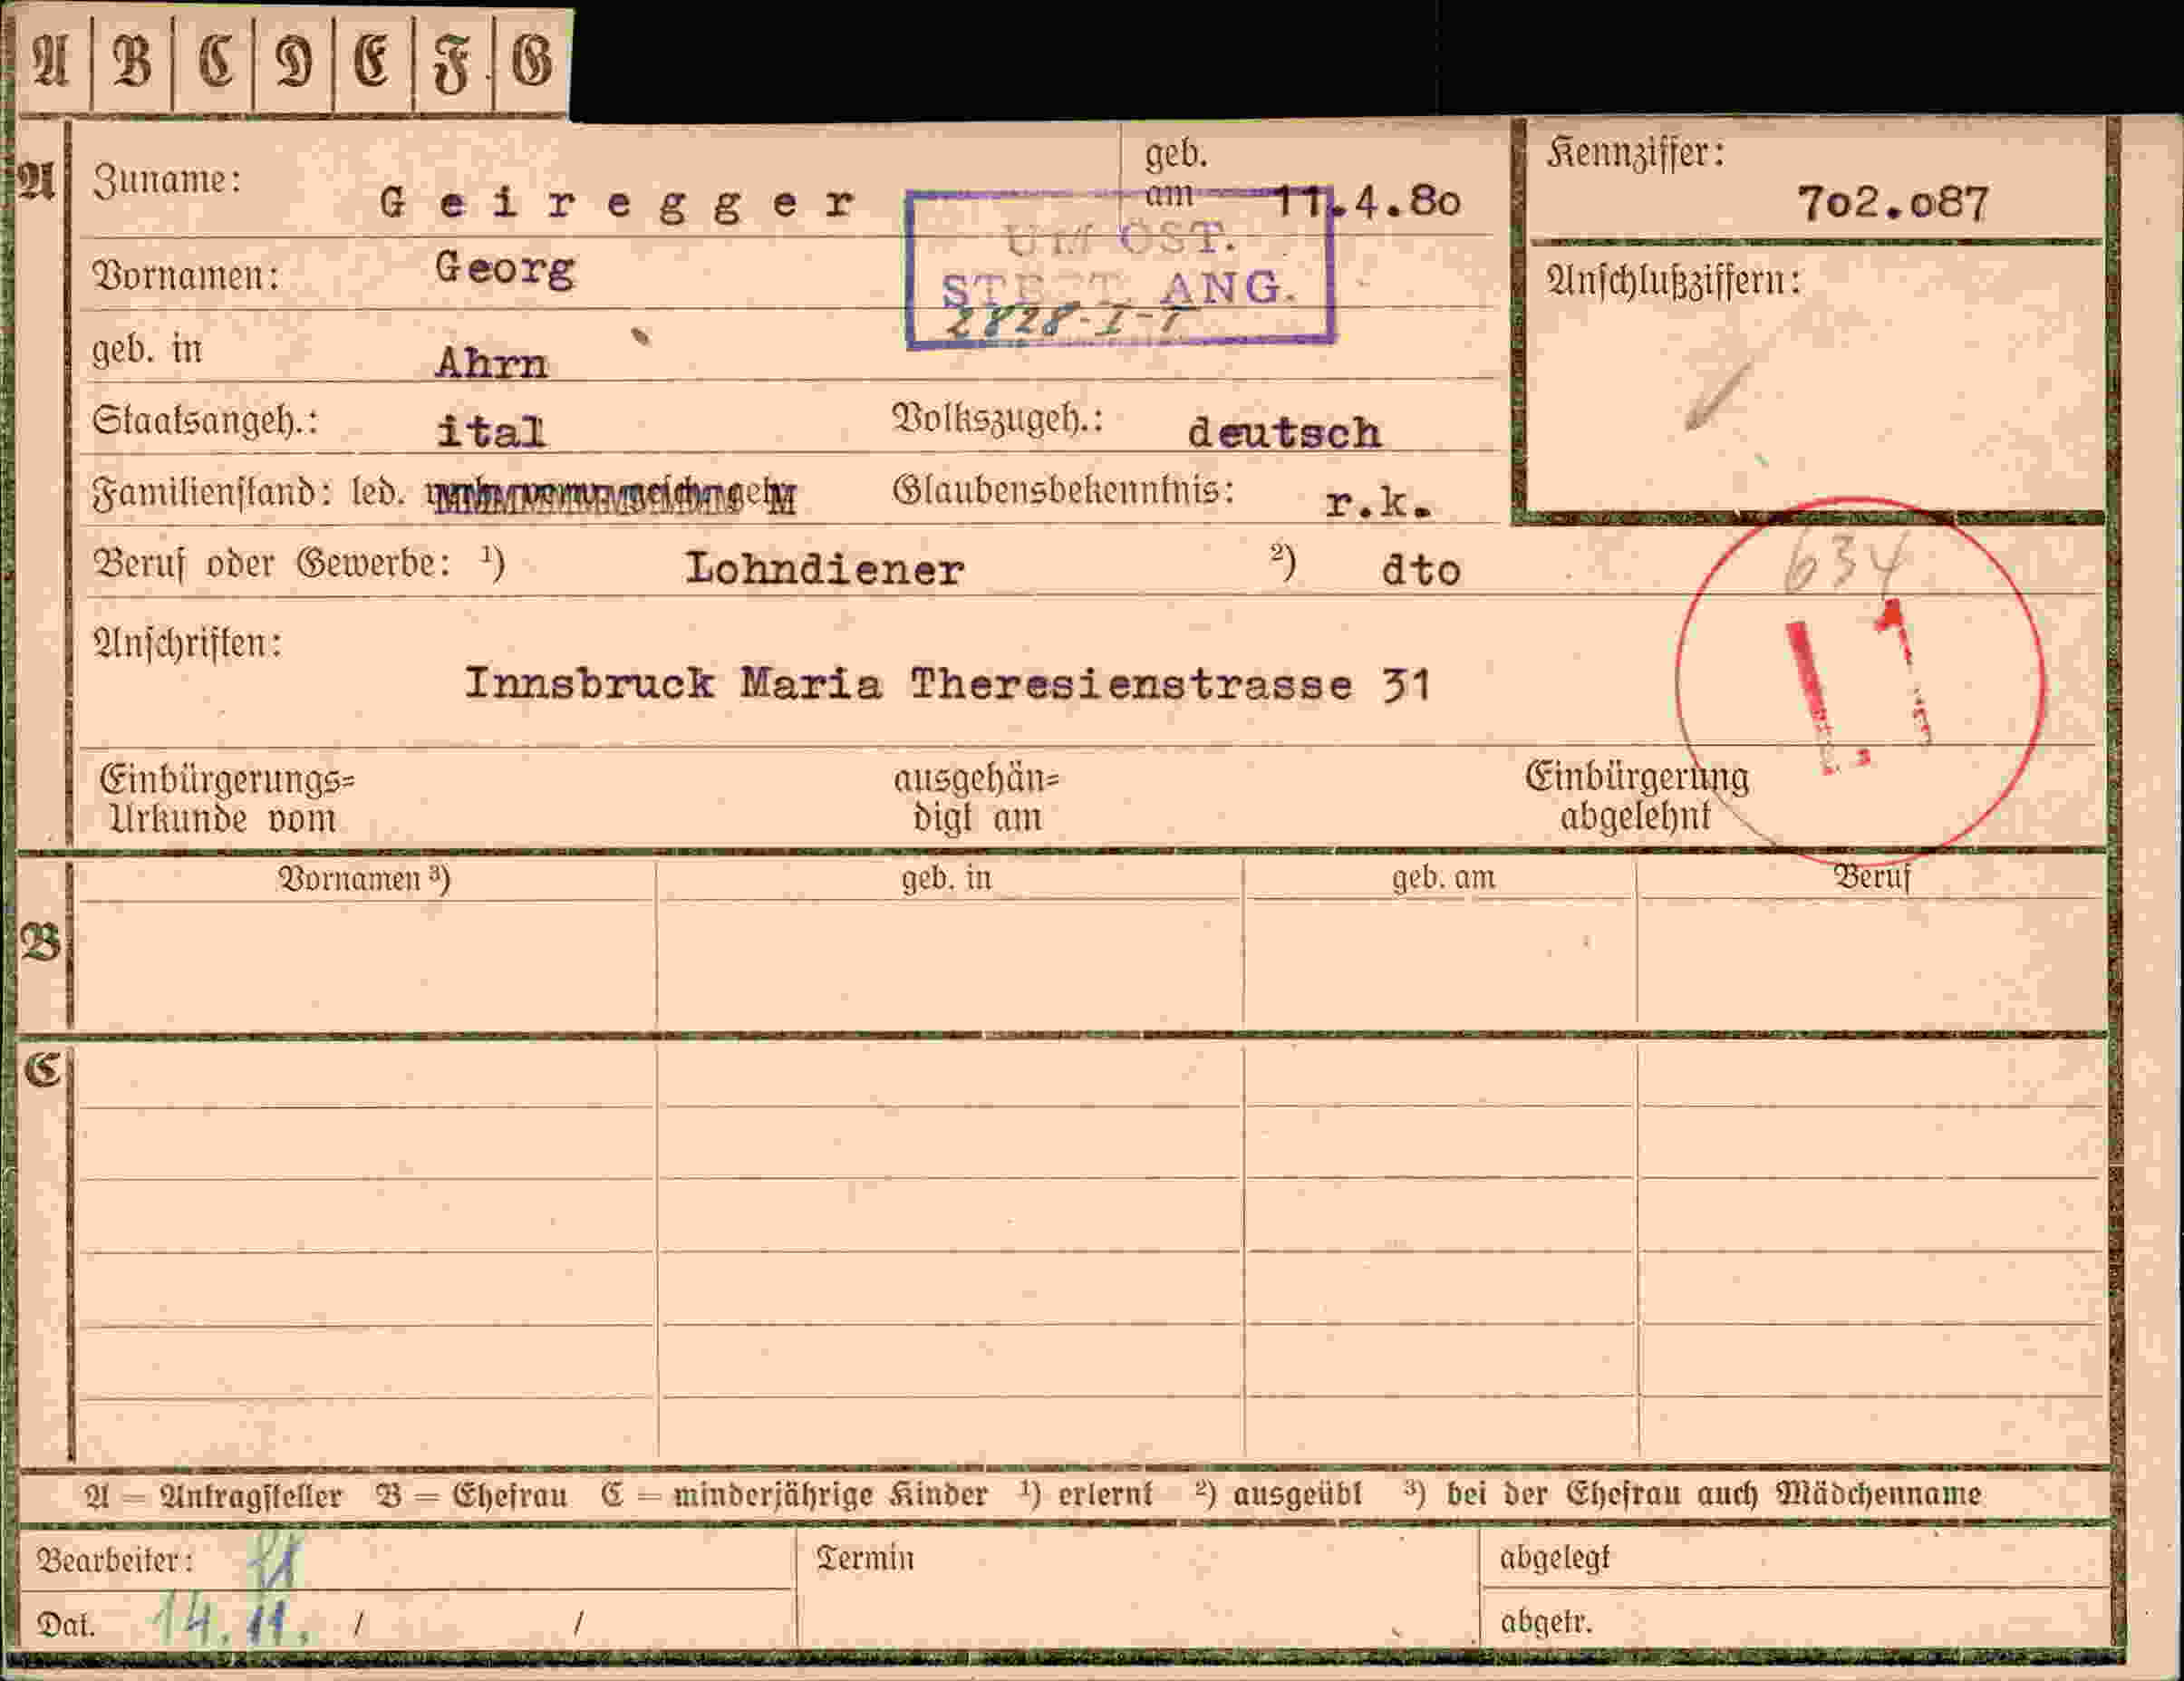 A B C D E F G
A Zuname: Geiregger geb. am 11.4.80
Kennziffer: 702.087
UM OST.
ST ANG.
2828-I-
Vornamen: Georg
Anschlußziffern:
geb. in Ahrn
Staatsangeh.: ital Volkszugeh.: deutsch
Familienstand: led. Glaubensbekenntnis: r.k.
Beruf oder Gewerbe: ¹) Lohndiener ²) dto
634
Anschriften:
Innsbruck Maria Theresienstrasse 31
Einbürgerungs= ausgehän= Einbürgerung
Urkunde vom digt am abgelehnt
B Vornamen ³) geb. in geb. am Beruf
C
A = Antragsteller B = Ehefrau C = minderjährige Kinder ¹) erlernt ²) ausgeübt ³) bei der Ehefrau auch Mädchenname
Bearbeiter: Termin abgelegt
Dat. 14. 11. / / abgetr.